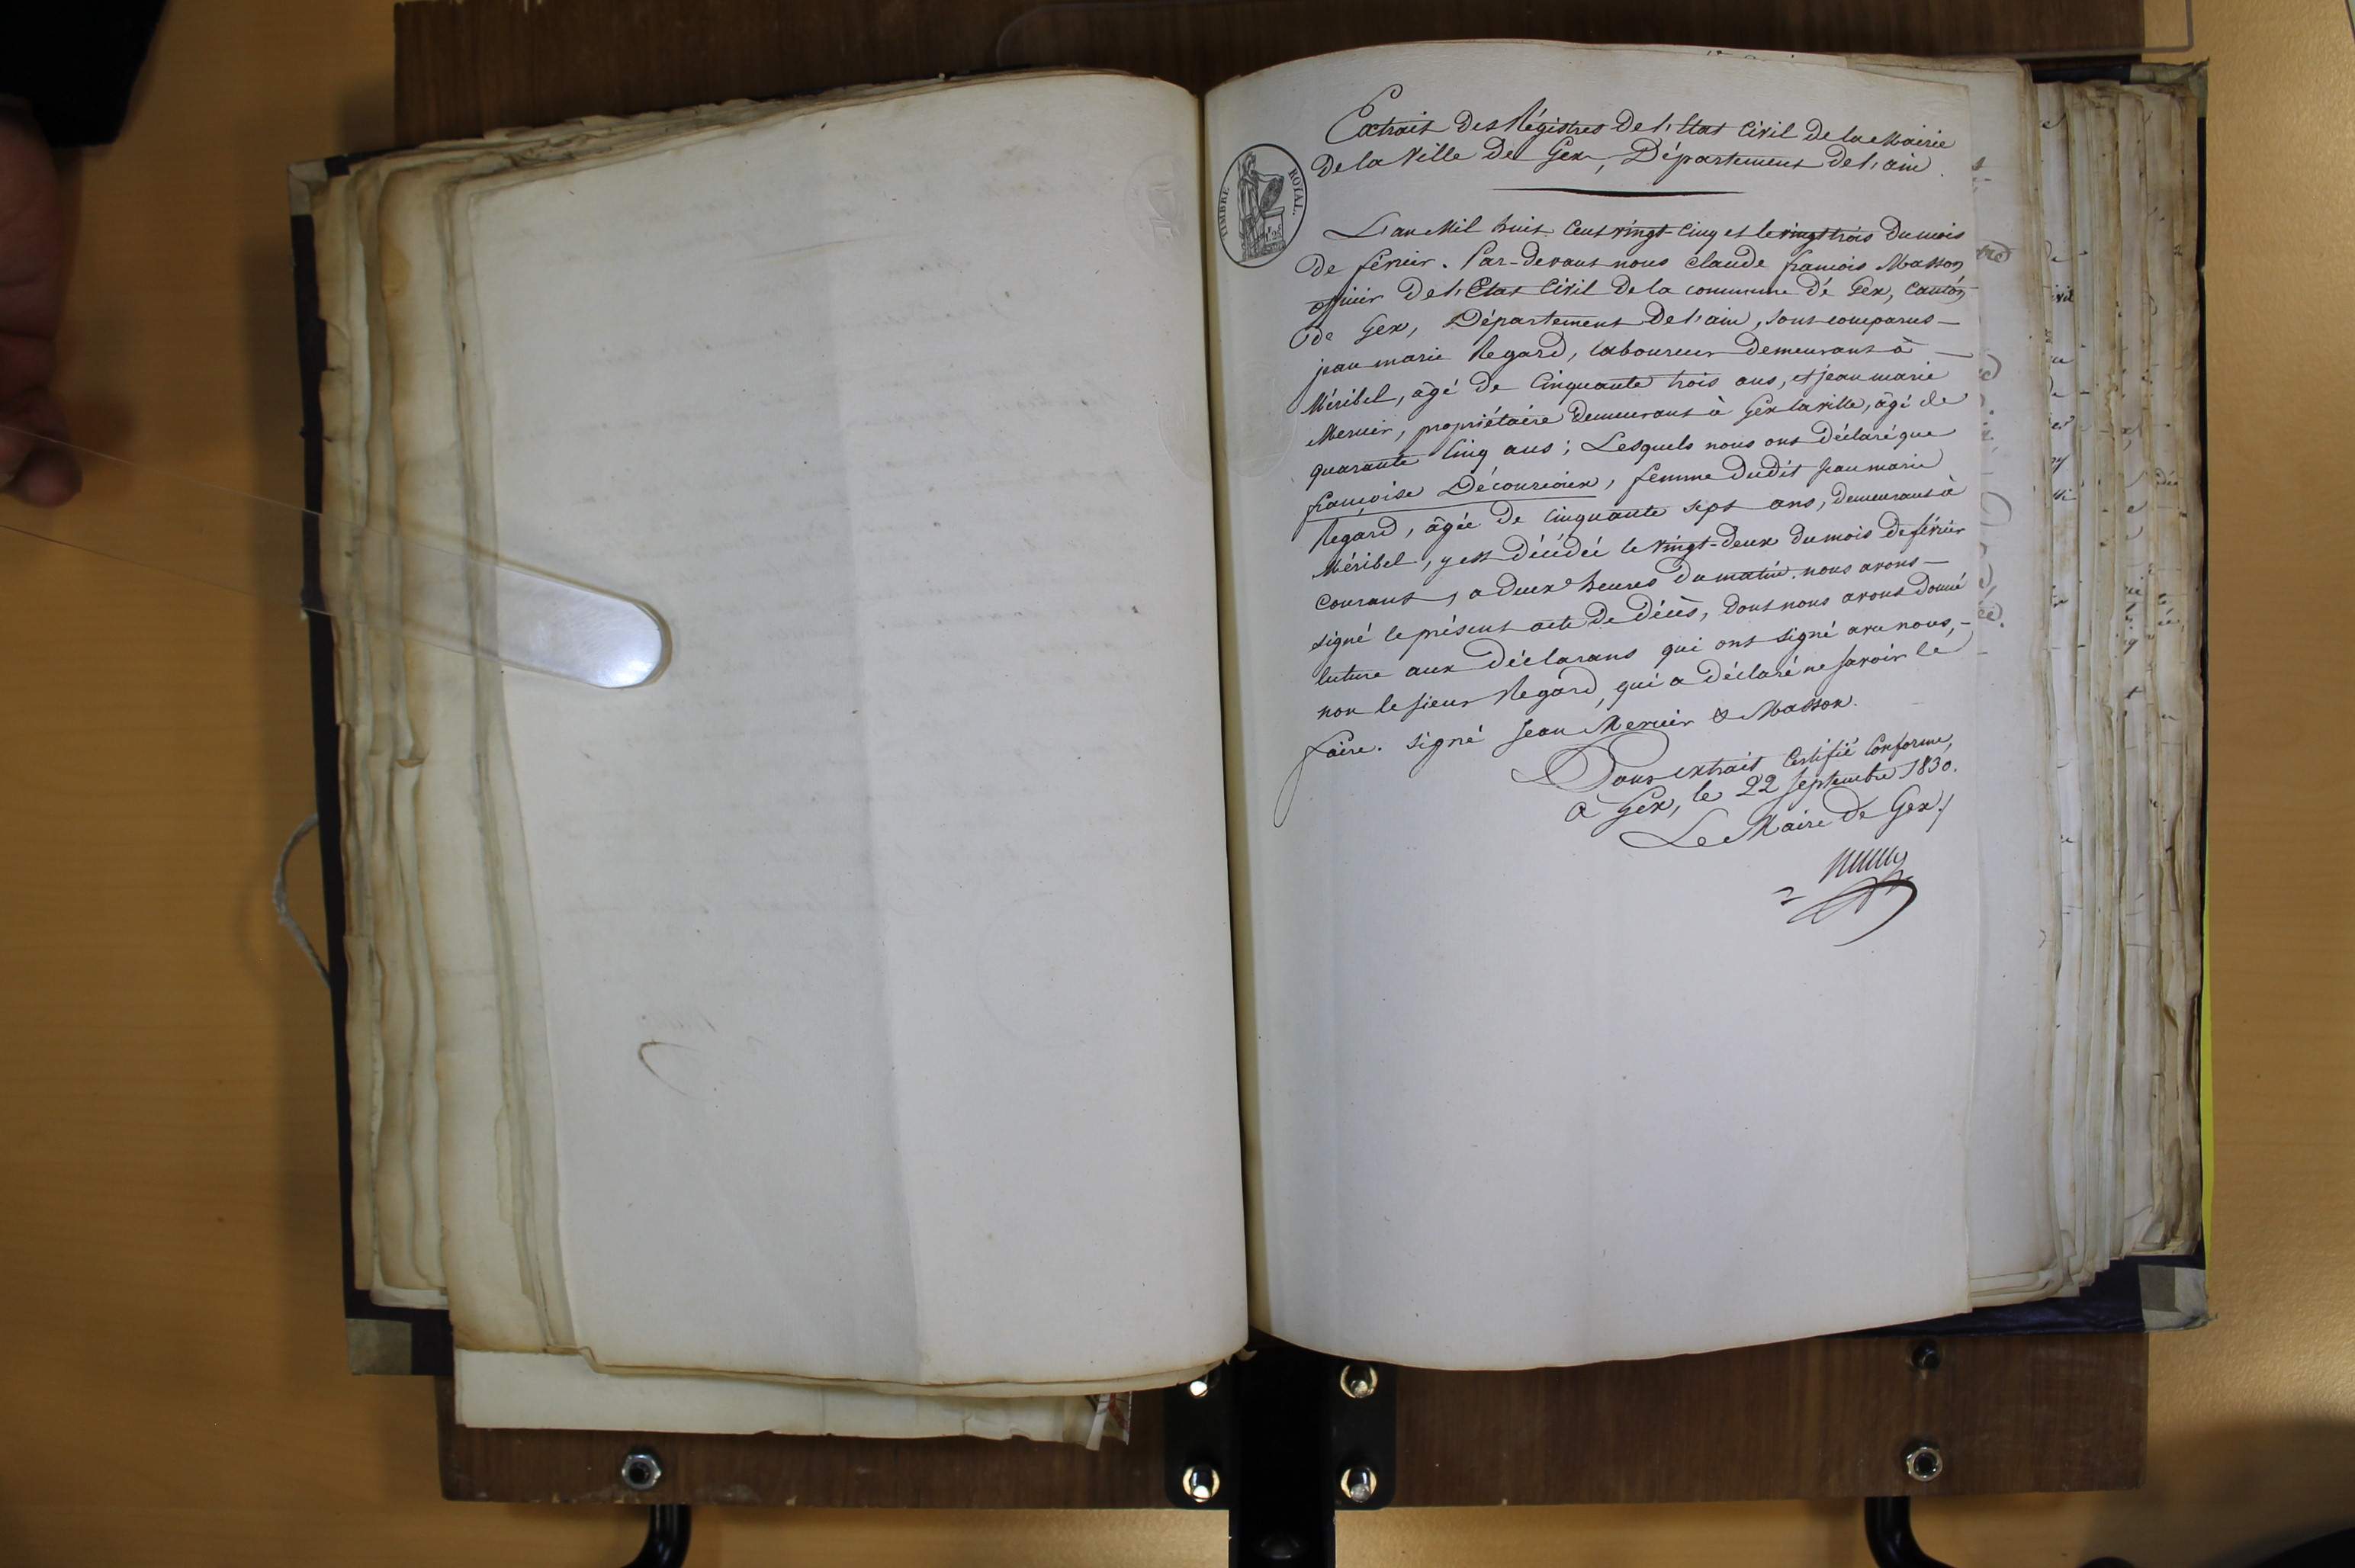 Extrait des Régistres de l'Etat Civil de la Mairie
de la Ville de Gex, Département de l'ain.
TIMBRE ROYAL.
L'an Mil huit Cent vingt-Cinq et le vingt trois du mois
de février. Par-devant nous claude francois Masson
officier de l'Etat Civil de la commune de Gex, Canton
de Gex, Département de l'ain, sont comparus
jean marie Regard, laboureur demeurant à
Méribel, âgé de Cinquante trois ans, et jean marie
Mercier, propriétaire demeurant à Gex la ville, âgé de
quarante Cinq ans; Lesquels nous ont déclaré que
françoise Décourioux, femme dudit jean marie
Regard, âgée de cinquante sept ans, demeurant à
Méribel, y est décédée le vingt-deux du mois de février
courant, a deux heures du matin. nous avons
signé le présent acte de décès, dont nous avons donné
lecture aux déclarans qui ont signé avec nous,
non le sieur Regard, qui a déclaré ne savoir le
faire. signé Jean Mercier & Masson.
Pour extrait Certifié Conforme,
à Gex, le 22 Septembre 1830.
Le Maire de Gex.